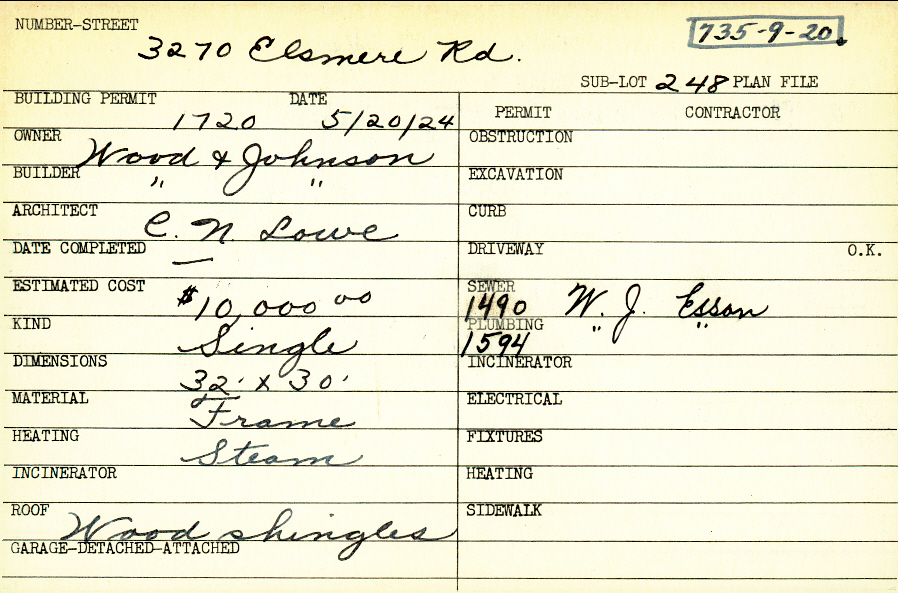 NUMBER-STREET
3270 Elsmere Rd.
735-9-20.
SUB-LOT 248 PLAN FILE
BUILDING PERMIT DATE
1720 5/20/24
OWNER
Wood & Johnson
BUILDER " "
ARCHITECT
C. N. Lowe
DATE COMPLETED
—
ESTIMATED COST
$10,000 00
KIND
Single
DIMENSIONS
32' x 30'
MATERIAL
Frame
HEATING
Steam
INCINERATOR
ROOF
Wood shingles
GARAGE-DETACHED-ATTACHED
PERMIT CONTRACTOR
OBSTRUCTION
EXCAVATION
CURB
DRIVEWAY O.K.
SEWER
1490 W. J. Esson
PLUMBING " "
1594
INCINERATOR
ELECTRICAL
FIXTURES
HEATING
SIDEWALK